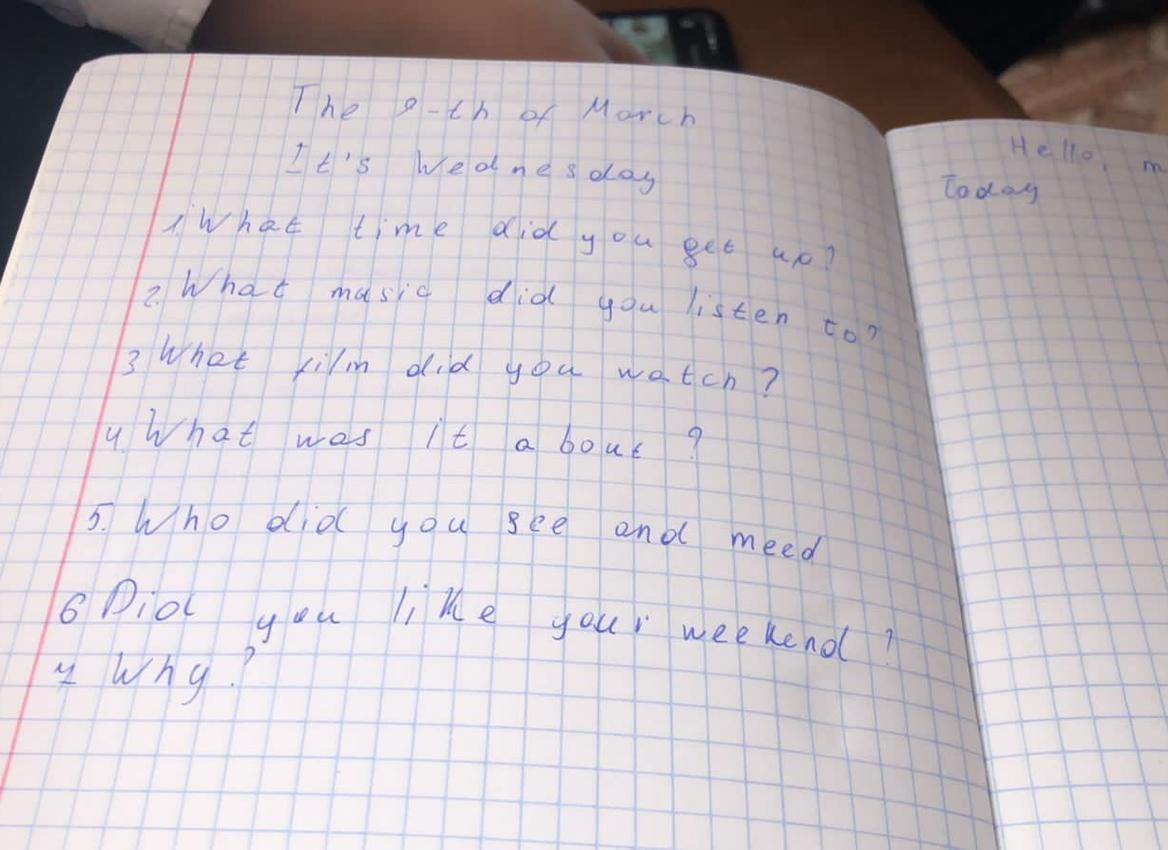 The 9-th of March
It's Wednesday
1 What time did you get up?
2. What music did you listen to?
3 What film did you watch?
4. What was it about?
5. Who did you see and meed
6 Did you like your weekend?
7 Why?
Hello, m
Today